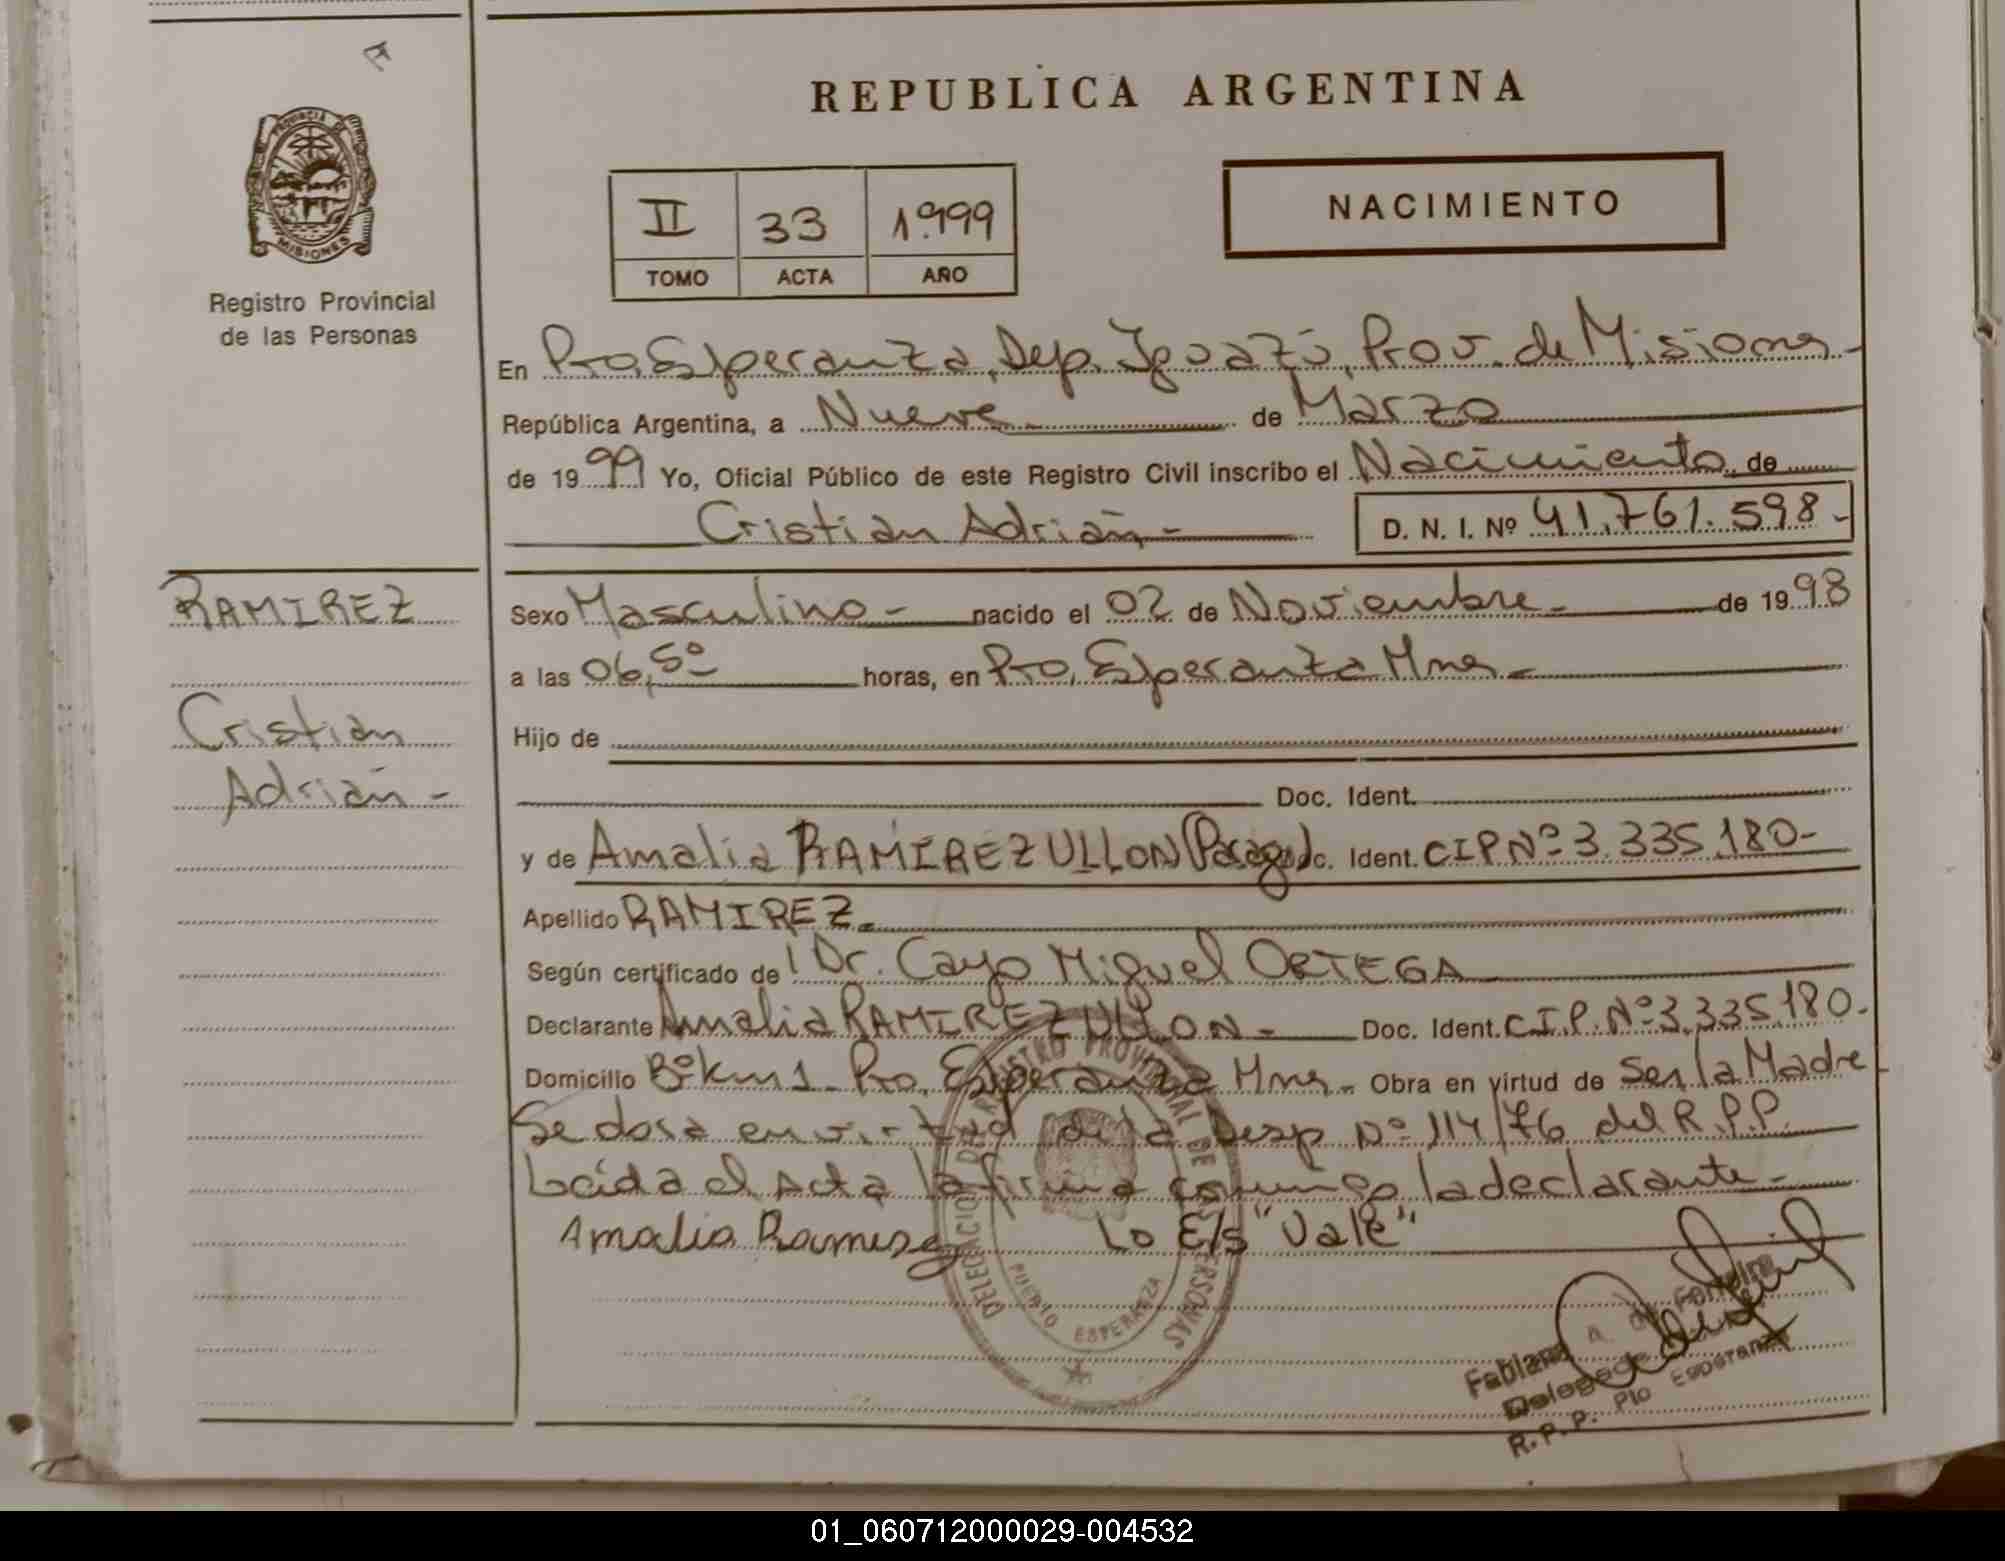 REPUBLICA ARGENTINA
PROVINCIA DE
MISIONES
Registro Provincial
de las Personas
II 33 1.999
TOMO ACTA AÑO
NACIMIENTO
En Pto. Esperanza, Dep. Iguazú, Prov. de Misiones-
República Argentina, a Nueve de Marzo
de 1999 Yo, Oficial Público de este Registro Civil inscribo el Nacimiento de
Cristian Adrián- D. N. I. Nº 41.761.598-
RAMIREZ
Cristian
Adrián-
Sexo Masculino- nacido el 02 de Noviembre- de 1998
a las 06,50 horas, en Pto. Esperanza Mnes-
Hijo de
Doc. Ident.
y de Amalia RAMIREZ ULLON (Paraguy) Doc. Ident. CIP Nº 3.335.180-
Apellido RAMIREZ-
Según certificado del Dr. Cayo Miguel ORTEGA
Declarante Amalia RAMIREZ ULLON- Doc. Ident. C.I.P. Nº 3.335.180-
Domicilio Bº km 1 Pto. Esperanza Mnes- Obra en virtud de Ser la Madre
en virtud de la Desp Nº 114/76 del R.P.P.
Leída el Acta la firma conmigo la declarante-
Amalia Ramirez Lo E/s "Vale"
DELEGACION DEL REGISTRO PROVINCIAL DE LAS PERSONAS
PUERTO ESPERANZA
Fabiana A. de
Delegada
R.P.P. Pto Esperanza
01_060712000029-004532